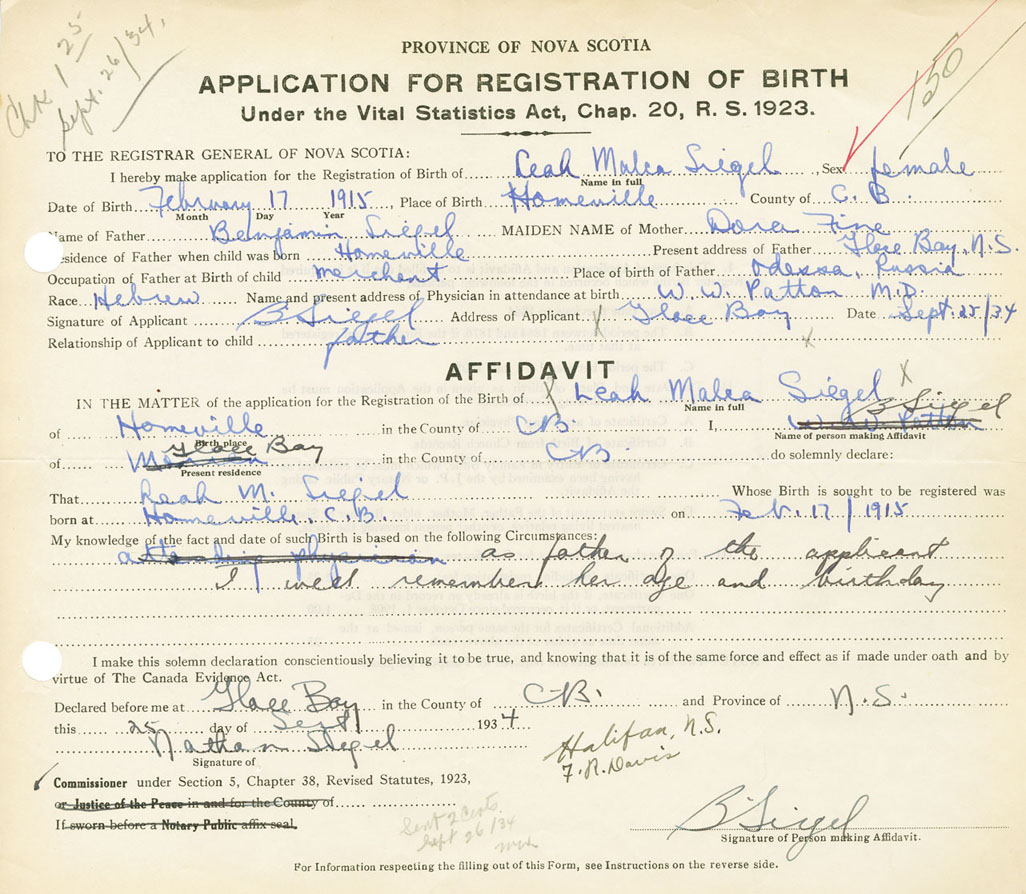 Chk 1 25
Sept. 26/34.
150
PROVINCE OF NOVA SCOTIA
APPLICATION FOR REGISTRATION OF BIRTH
Under the Vital Statistics Act, Chap. 20, R. S. 1923.
TO THE REGISTRAR GENERAL OF NOVA SCOTIA:
I hereby make application for the Registration of Birth of Leah Malca Siegel, Sex female
Name in full
Date of Birth February 17 1915, Place of Birth Homeville County of C. B.
Month Day Year
Name of Father Benjamin Siegel MAIDEN NAME of Mother Dora Fine
esidence of Father when child was born Homeville Present address of Father Glace Bay, N.S.
Occupation of Father at Birth of child merchent Place of birth of Father Odessa, Russia
Race Hebrew Name and present address of Physician in attendance at birth W. W. Patton M.D.
Signature of Applicant B Siegel Address of Applicant X Glace Bay Date Sept. 25/34
Relationship of Applicant to child father X
AFFIDAVIT
IN THE MATTER of the application for the Registration of the Birth of X Leah Malca Siegel X
Name in full
B Siegel
of Homeville in the County of CB. I, W. W. Patton
Birth place Name of person making Affidavit
Glace Bay
of in the County of CB. do solemnly declare:
Present residence
That Leah M. Siegel Whose Birth is sought to be registered was
born at Homeville, C.B. on Feb. 17/1915
My knowledge of the fact and date of such Birth is based on the following Circumstances:
attending physician as father of the applicant
I well remember her age and birthday
I make this solemn declaration conscientiously believing it to be true, and knowing that it is of the same force and effect as if made under oath and by
virtue of The Canada Evidence Act.
Declared before me at Glace Bay in the County of CB. and Province of N.S.
this 25 day of Sept 1934
Nathan Siegel
Signature of
Halifax, N.S.
F. R. Davis
Commissioner under Section 5, Chapter 38, Revised Statutes, 1923,
or Justice of the Peace in and for the County of
If sworn before a Notary Public affix seal.
Sent 2 Certs.
Sept 26/34
B Siegel
Signature of Person making Affidavit.
For Information respecting the filling out of this Form, see Instructions on the reverse side.